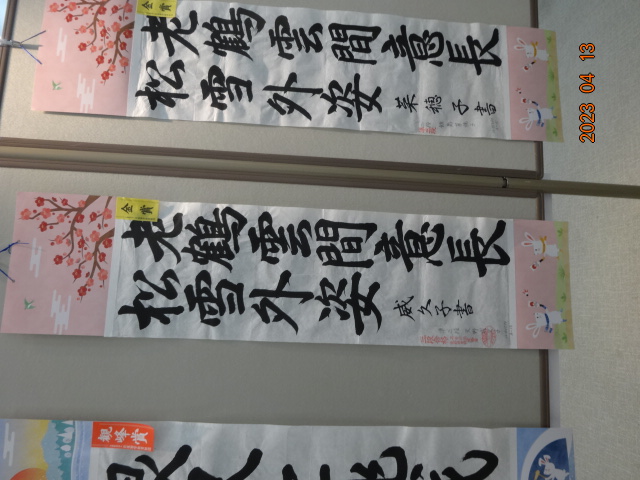 金賞
老鶴雲間意長
松雪外姿
菜穂子書
2023 04 13
金賞
老鶴雲間意長
松雪外姿
威久子書
観峰賞